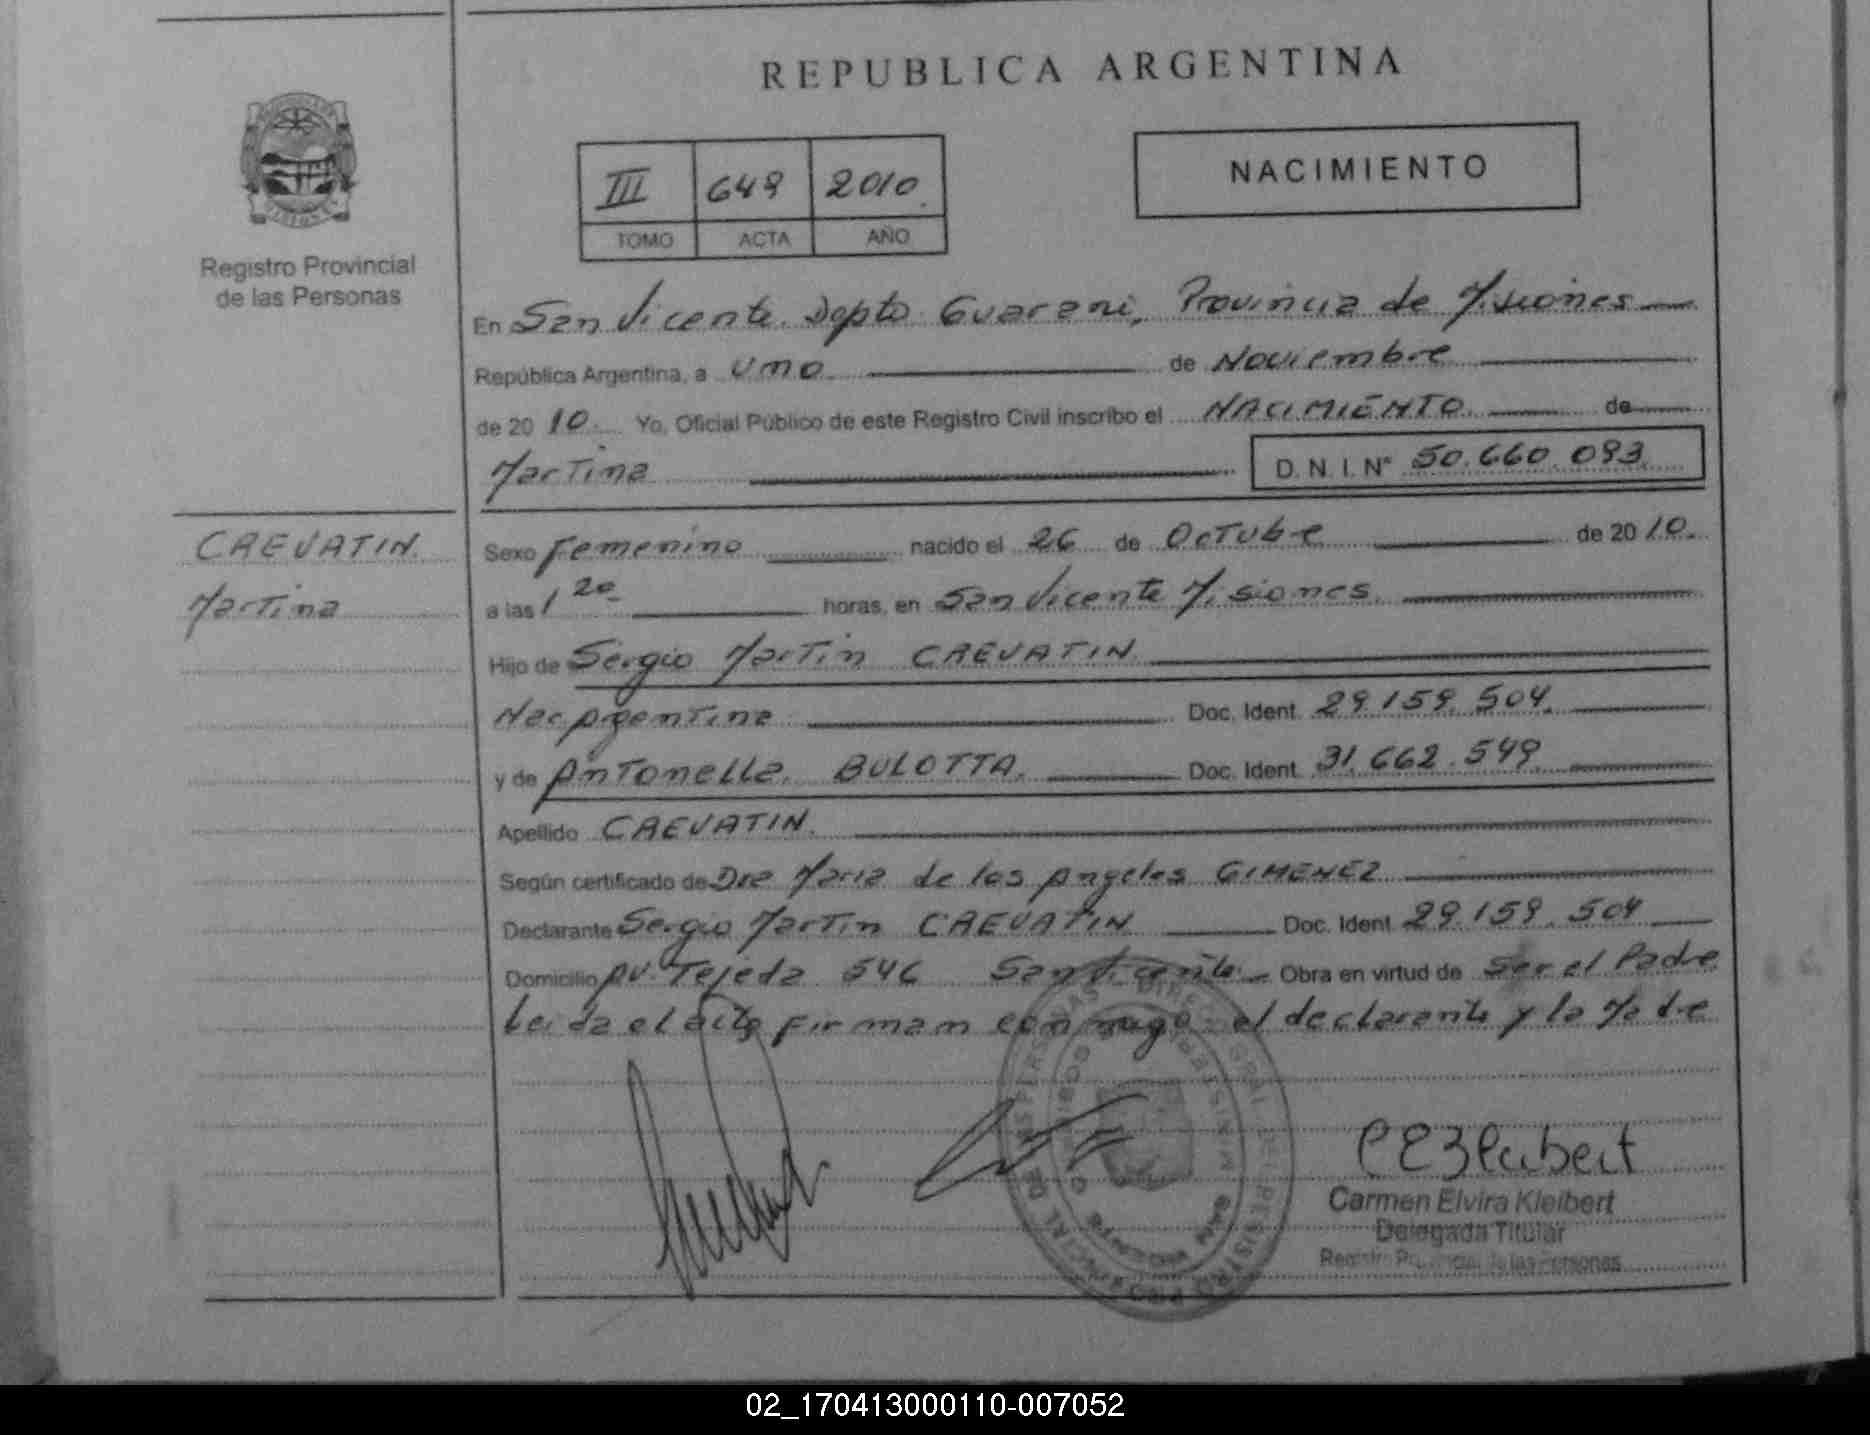 REPUBLICA ARGENTINA
NACIMIENTO
III 649 2010
TOMO ACTA AÑO
Registro Provincial
de las Personas
En San Vicente. Depto Guarani, Provincia de Misiones
República Argentina, a uno de Noviembre
de 2010. Yo, Oficial Público de este Registro Civil inscribo el NACIMIENTO de
Martina D. N. I. Nº 50.660.093
CAEVATIN.
Martina
Sexo Femenino nacido el 26 de Octubre de 2010.
a las 1 20 horas, en San Vicente Misiones.
Hijo de Sergio Martin CAEVATIN
Nac Argentina Doc. Ident. 29.159.504.
y de Antonella BULOTTA. Doc. Ident. 31.662.549
Apellido CAEVATIN.
Según certificado de Dra Maria de los Angeles GIMENEZ
Declarante Sergio Martin CAEVATIN Doc. Ident. 29.159.504
Domicilio AV. Tejeda 546 San Vicente Obra en virtud de Ser el Padre
Leida el acta firman conmigo el declarante y la Madre
Carmen Elvira Kleibert
Delegada Titular
Registro Provincial de las Personas
02_170413000110-007052